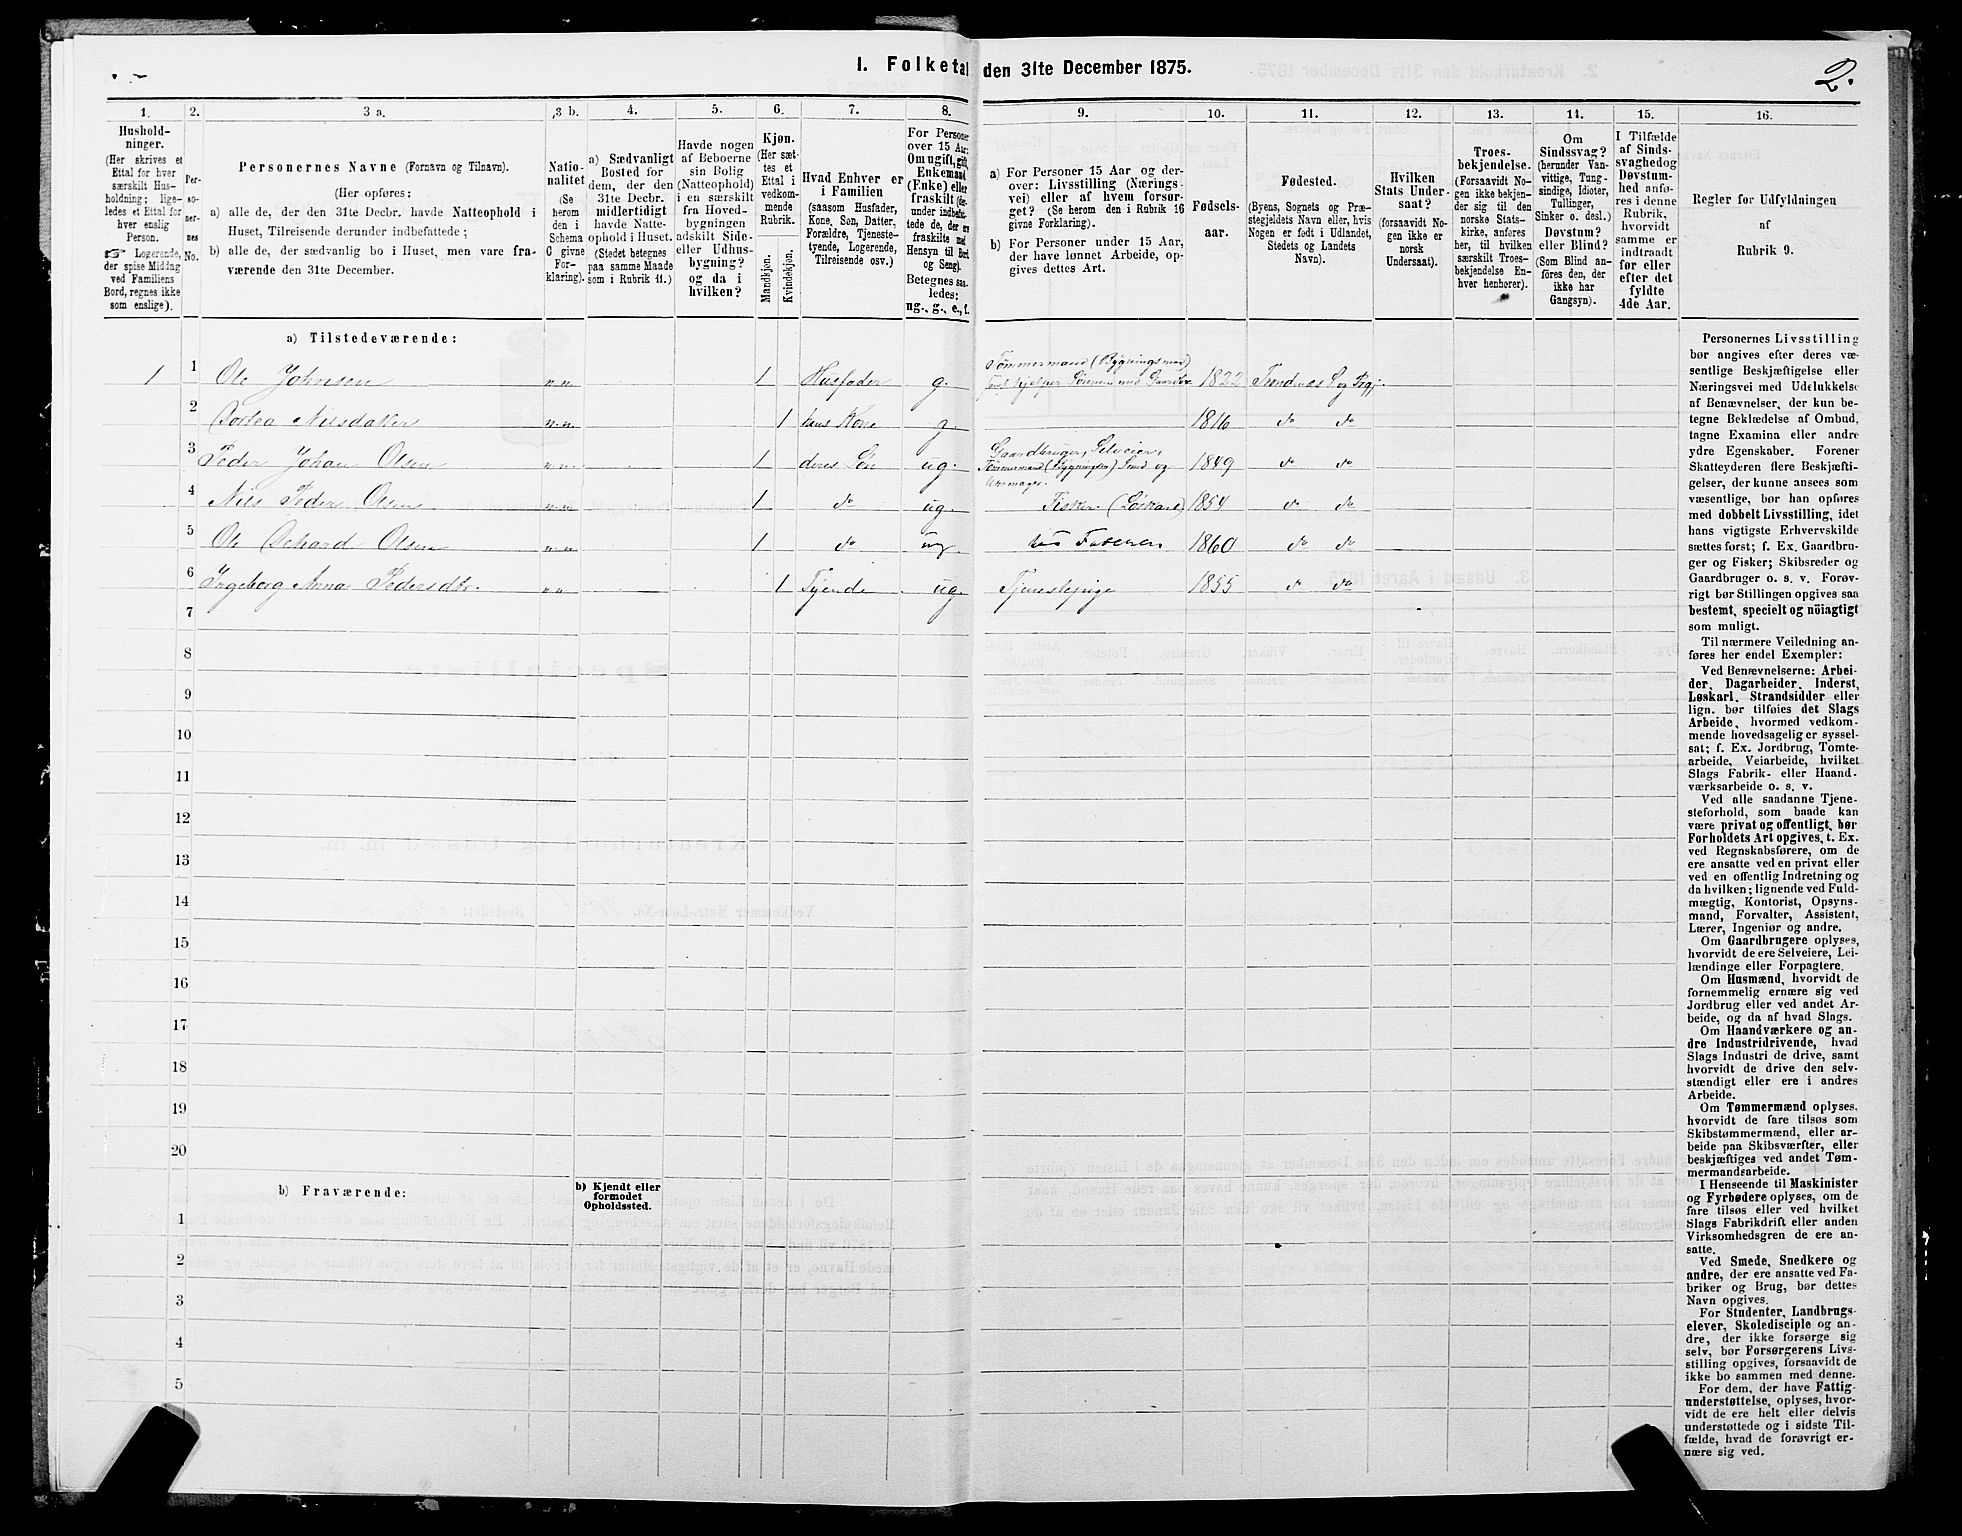 1. Folketal den 31te December 1875.
2.
1.
Hushold-
ninger.
(Her skrives et
Ettal for hver
særskilt Hus-
holdning; lige-
ledes et Ettal for
hver enslig
Person.
☞ Logerende,
der spise Middag
ved Familiens
Bord, regnes ikke
som enslige).
2.
Per-
so-
ner-
nes
No.
3 a.
Personernes Navne (Fornavn og Tilnavn).
(Her opføres:
a) alle de, der den 31te Decbr. havde Natteophold i
Huset, Tilreisende derunder indbefattede;
b) alle de, der sædvanlig bo i Huset, men vare fra-
værende den 31te December.
3 b.
Natio-
nalitet
(Se
herom
den i
Schema
C givne
For-
klaring).
4.
a) Sædvanligt
Bosted for
dem, der den
31te Decbr.
midlertidigt
havde Natte-
ophold i Huset.
(Stedet betegnes
paa samme Maade
som i Rubrik 11.)
5.
Havde nogen
af Beboerne
sin Bolig
(Natteophold)
i en særskilt
fra Hoved-
bygningen
adskilt Side-
eller Udhus-
bygning?
og da i
hvilken?
6.
Kjøn.
(Her sæt-
tes et
Ettal i
vedkom-
mende
Rubrik.
Mandkjøn.
Kvindekjøn.
7.
Hvad Enhver er
i Familien
(saasom Husfader,
Kone, Søn, Datter,
Forældre, Tjeneste-
tyende, Logerende,
Tilreisende osv.)
8.
For Personer
over 15 Aar:
Om ugift, gift,
Enkemand
(Enke) eller
fraskilt (der-
under indbefat-
tede de, der ere
fraskilte med
Hensyn til Bord
og Seng).
Betegnes saa-
ledes:
ug., g., e., f.
9.
a) For Personer 15 Aar og der-
over: Livsstilling (Nærings-
vei) eller af hvem forsør-
get? (Se herom den i Rubrik 16
givne Forklaring).
b) For Personer under 15 Aar,
der have lønnet Arbeide, op-
gives dettes Art.
10.
Fødsels-
aar.
11.
Fødested.
(Byens, Sognets og Præ-
stegjeldets Navn eller, hvis
Nogen er født i Udlandet,
Stedets og Landets
Navn).
12.
Hvilken
Stats Under-
saat?
(forsaavidt No-
gen ikke er
norsk
Undersaat).
13.
Troes-
bekjendelse.
(Forsaavidt No-
gen ikke bekjen-
der sig til den
norske Stats-
kirke, anføres
her, til hvilken
særskilt Troes-
bekjendelse En-
hver henhører).
14.
Om
Sindssvag?
(herunder Van-
vittige, Tung-
sindige, Idioter,
Tullinger,
Sinker o. desl.)
Døvstum?
eller Blind?
(Som Blind an-
føres den, der
ikke har
Gangsyn).
15.
I Tilfælde
af Sinds-
svaghed og
Døvstum-
hed anfø-
res i denne
Rubrik,
hvorvidt
samme er
indtraadt
før eller
efter det
fyldte
4de Aar.
16.
Regler for Udfyldningen
af
Rubrik 9.
a) Tilstedeværende:
1 1 Ole Johnsen n.n. 1 Husfader g. Tømmermand (Bygningsmd) 1822 Trondnæs S og Prgj.
2 n.n. 1 hans Kone g. 1816 do do
3 Peder Johan Olsen n.n. 1 deres Søn ug. Gaardbruger, Selveier,
Tømmermand (Bygnings) Smed og 1849 do do
Uhrmager.
4 Nils Peder Olsen n.n. 1 do ug. Fisker (Løskarl) 1854 do do
5 Ole Olsen n.n. 1 do ug. 1860 do do
6 Ingeborg Anna Pedersdtr. n.n. 1 Tyende ug. Tjenestepige 1855 do do
7
8
9
10
11
12
13
14
15
16
17
18
19
20
b) Fraværende:
b) Kjendt eller
formodet
Opholdssted.
1
2
3
4
5
Personernes Livsstilling
bør angives efter deres væ-
sentlige Beskjæftigelse eller
Næringsvei med Udelukkelse
af Benævnelser, der kun be-
tegne Beklædelse af Ombud,
tagne Examina eller andre
ydre Egenskaber. Forener
Skatteyderen flere Beskjæfti-
gelser, der kunne ansees som
væsentlige, bør han opføres
med dobbelt Livsstilling, idet
hans vigtigste Erhvervskilde
sættes først; f. Ex. Gaardbru-
ger og Fisker; Skibsreder og
Gaardbruger o. s. v. Forøv-
rigt bør Stillingen opgives saa
bestemt, specielt og nöiagtigt
som muligt.
Til nærmere Veiledning an-
føres her endel Exempler:
Ved Benævnelserne: Arbei-
der, Dagarbeider, Inderst,
Løskarl, Strandsidder eller
lign. bør tilføies det Slags
Arbeide, hvormed vedkom-
mende hovedsagelig er syssel-
sat; f. Ex. Jordbrug, Tomte-
arbeide, Veiarbeide, hvilket
Slags Fabrik- eller Haand-
værksarbeide o. s. v.
Ved alle saadanne Tjene-
steforhold, som baade kan
være privat og offentligt, bør
Forholdets Art opgives, t. Ex.
ved Regnskabsførere, om de
ere ansatte ved en privat eller
ved en offentlig Indretning og
da hvilken; lignende ved Fuld-
mægtig, Kontorist, Opsyns-
mand, Forvalter, Assistent,
Lærer, Ingeniør og andre.
Om Gaardbrugere oplyses,
hvorvidt de ere Selveiere, Lei-
lændinge eller Forpagtere.
Om Husmænd, hvorvidt de
fornemmelig ernære sig ved
Jordbrug eller ved andet Ar-
beide, og da af hvad Slags.
Om Haandværkere og an-
dre Industridrivende, hvad
Slags Industri de drive, samt
hvorvidt de drive den selv-
stændigt eller ere i andres
Arbeide.
Om Tømmermænd oplyses,
hvorvidt de fare tilsøs som
Skibstømmermænd, eller ar-
beide paa Skibsværfter, eller
beskjæftiges ved andet Tøm-
mermandsarbeide.
I Henseende til Maskinister
og Fyrbødere oplyses, om de
fare tilsøs eller ved hvilket
Slags Fabrikdrift eller anden
Virksomhedsgren de ere an-
satte.
Ved Smede, Snedkere og
andre, der ere ansatte ved Fa-
briker og Brug, bør dettes
Navn opgives.
For Studenter, Landbrugs-
elever, Skoledisciple og an-
dre, der ikke forsørge sig
selv, bør Forsørgerens Livs-
stilling opgives, forsaavidt de
ikke bo sammen med denne.
For dem, der have Fattig-
understøttelse, oplyses, hvor-
vidt de ere helt eller delvis
understøttede og i sidste Til-
fælde, hvad de forøvrigt er-
nære sig ved.